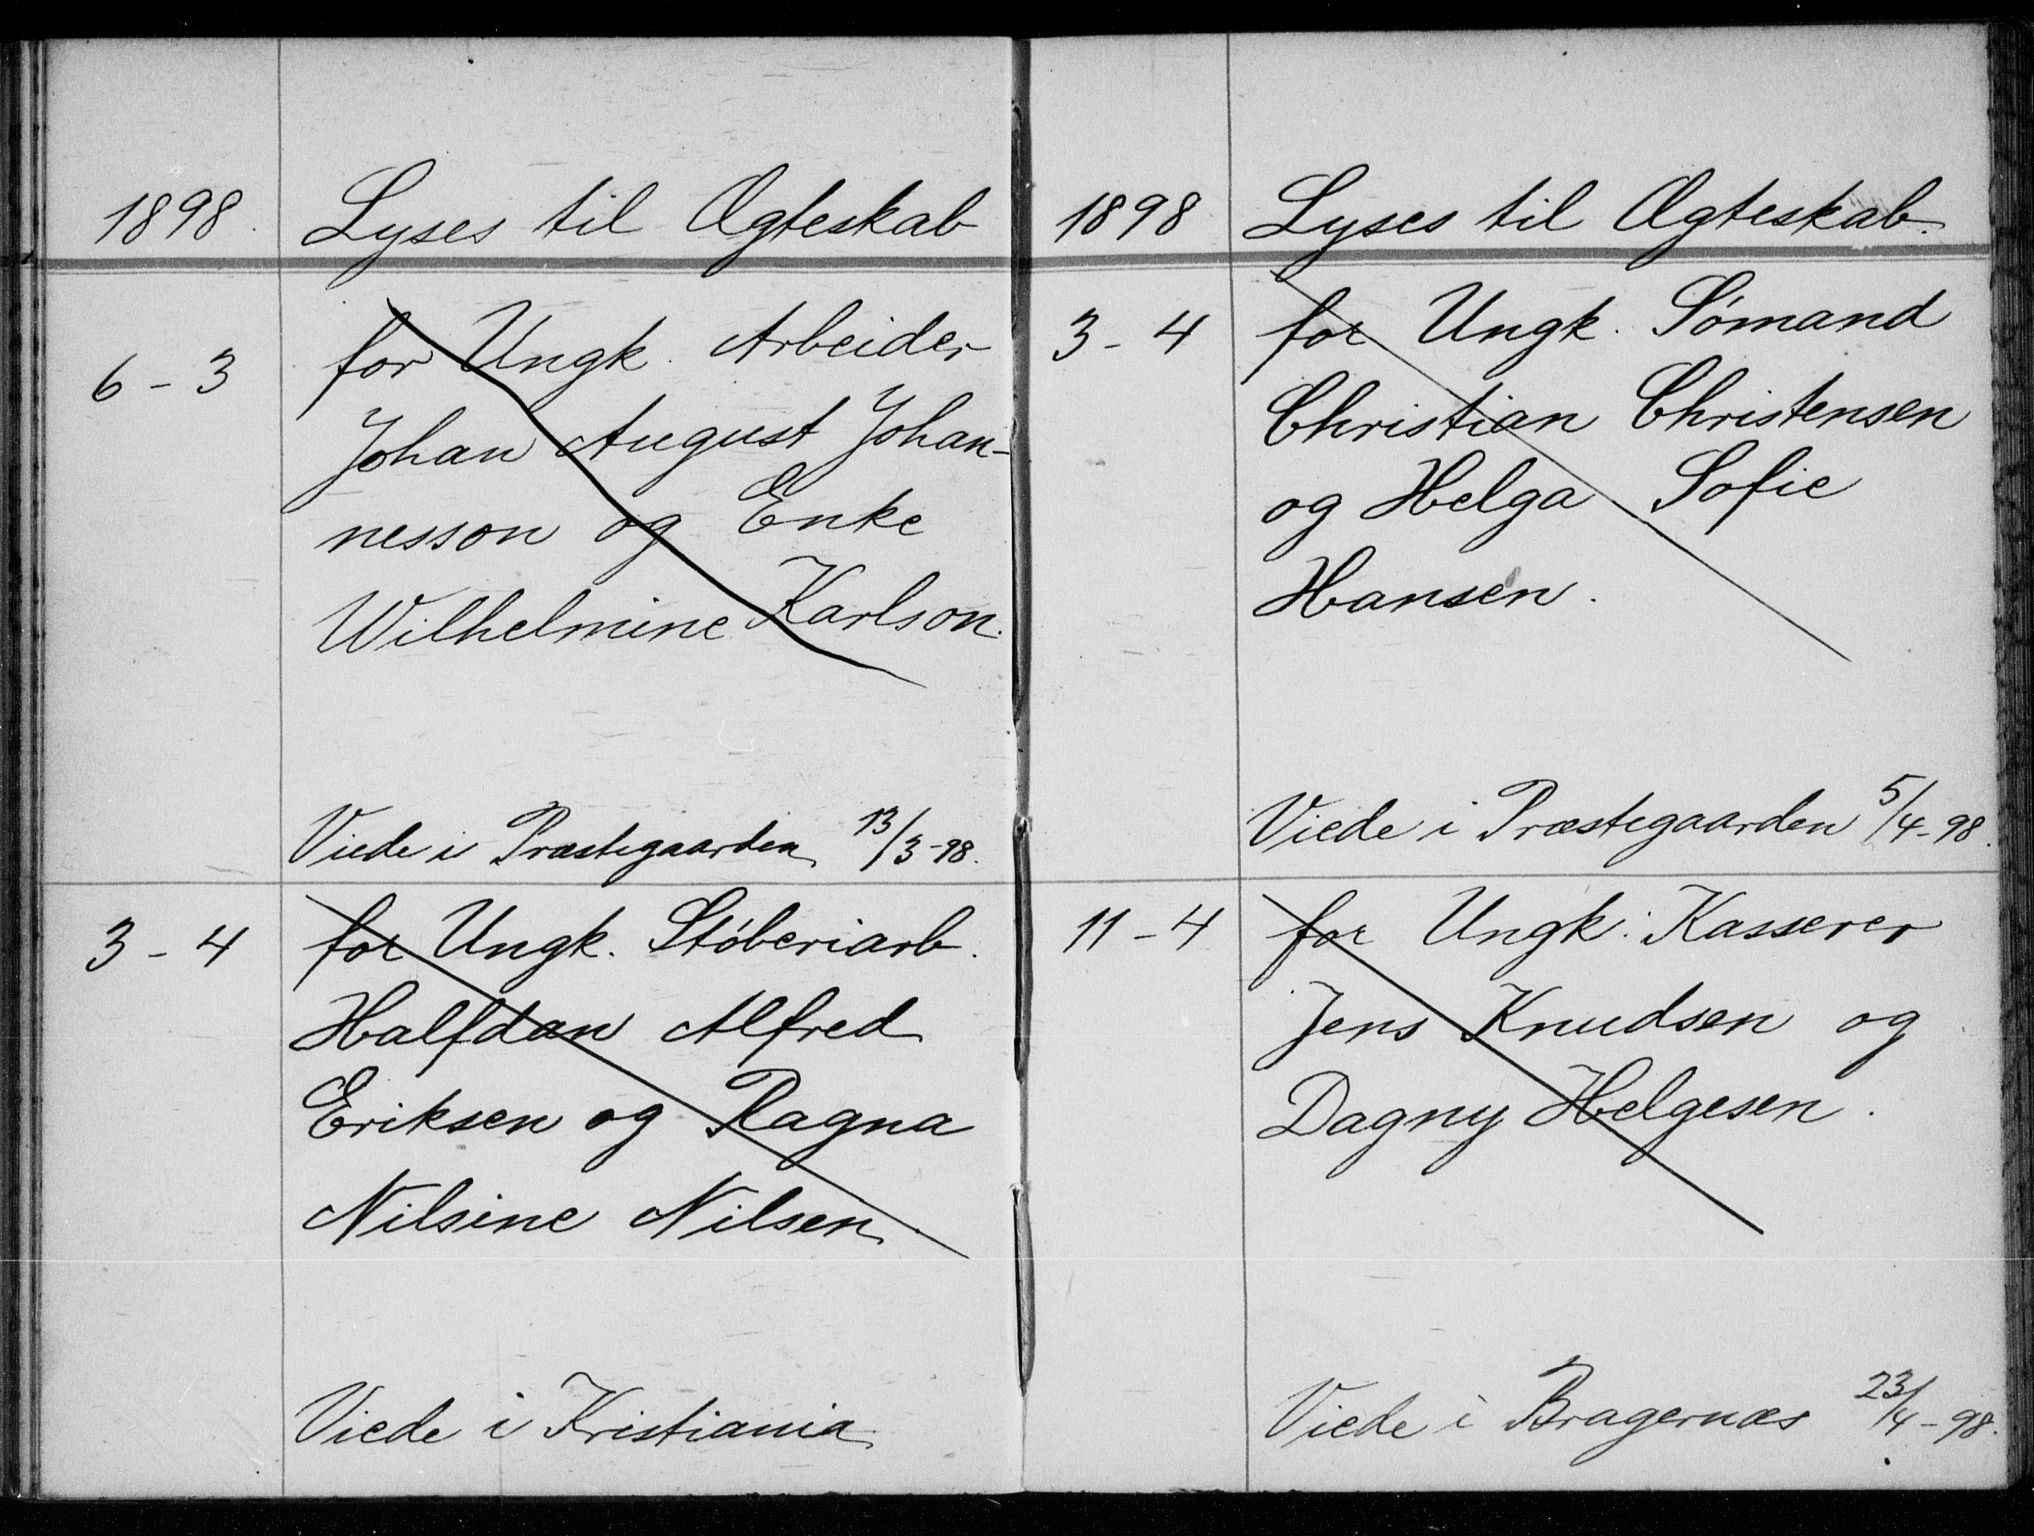 1898. Lyses til Ægteskab
6 - 3 for Ungk. Arbeider
Johan August Johan-
nesson og Enke
Wilhelmine Karlson.
Viede i Præstegaarden 13/3-98.
3 - 4 for Ungk. Støberiarb.
Halfdan Alfred
Eriksen og Ragna
Nilsine Nilsen
Viede i Kristiania
1898 Lyses til Ægteskab.
3 - 4 for Ungk. Sømand
Christian Christensen
og Helga Sofie
Hansen.
Viede i Præstegaarden 5/4-98.
11 - 4 for Ungk. Kasserer
Jens Knudsen og
Dagny Helgesen.
Viede i Bragernæs 23/4-98.